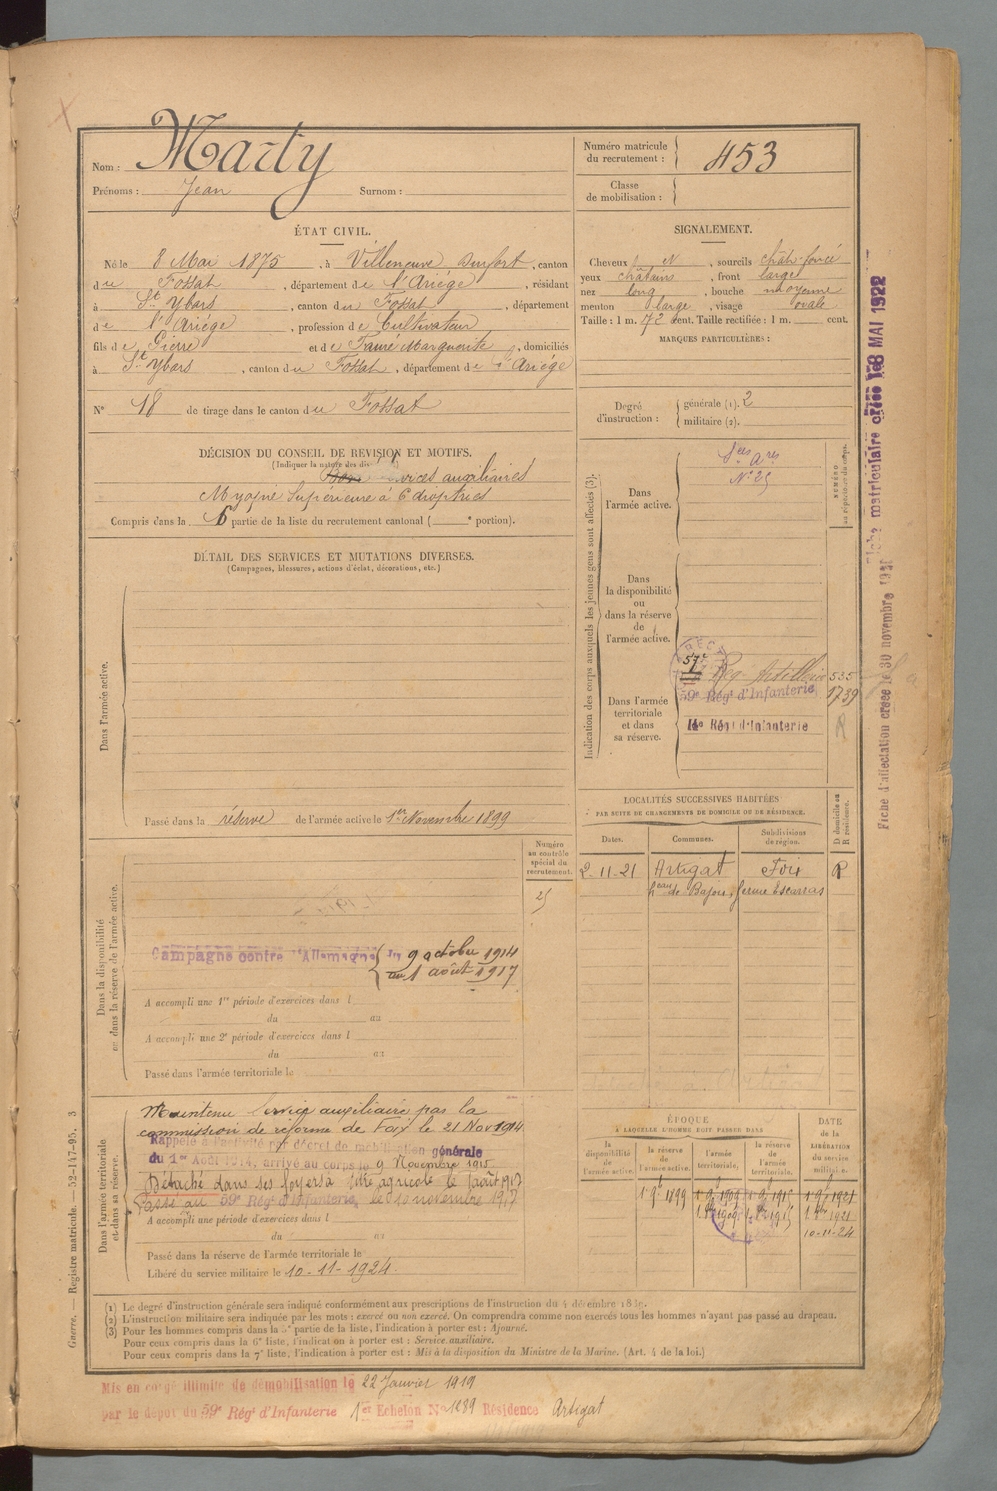 Nom : Marty
Prénoms : Jean Surnom :
Numéro matricule du recrutement : 453
Classe de mobilisation :
ÉTAT CIVIL.
Né le 8 Mai 1875, à Villeneuve Durfort, canton
du Fossat, département de l'Ariége, résidant
à St Ybars, canton du Fossat, département
de l'Ariége, profession de Cultivateur
fils de Pierre et de Fauré Marguerite, domiciliés
à St Ybars, canton du Fossat, département de l'Ariége
N° 18 de tirage dans le canton du Fossat
SIGNALEMENT.
Cheveux N, sourcils chât. foncé
yeux châtains, front large
nez long, bouche moyenne
menton large, visage ovale
Taille : 1 m. 72 cent. Taille rectifiée : 1 m. cent.
MARQUES PARTICULIÈRES :
Degré d'instruction : générale (1). 2
militaire (2).
DÉCISION DU CONSEIL DE REVISION ET MOTIFS.
(Indiquer la nature des dis
Bon services auxiliaires
Myopie Supérieure à 6 dioptries
Compris dans la 6 partie de la liste du recrutement cantonal ( e portion).
DÉTAIL DES SERVICES ET MUTATIONS DIVERSES.
(Campagnes, blessures, actions d'éclat, décorations, etc.)
Dans l'armée active.
Passé dans la réserve de l'armée active le 1er Novembre 1899
Indication des corps auxquels les jeunes gens sont affectés (3).
NUMÉRO au répertoire du corps.
Dans l'armée active.
Sces Ares
N° 25
Dans la disponibilité ou dans la réserve de l'armée active.
Dans l'armée territoriale et dans sa réserve.
57e Rég. Artillerie 535
59e Régt d'Infanterie 1739
14e Régt d'Infanterie R
Fiche d'affectation créée le 30 novembre
Fiche matriculaire créée le 8 MAI 1922
LOCALITÉS SUCCESSIVES HABITÉES
PAR SUITE DE CHANGEMENTS DE DOMICILE OU DE RÉSIDENCE.
Dates. Communes. Subdivisions de région. D domicile ou R résidence.
2-11-21 Artigat Foix R
heau de Bajou, ferme Escarras
Dans la disponibilité ou dans la réserve de l'armée active.
Numéro au contrôle spécial du recrutement.
Campagne contre l'Allemagne du 9 octobre 1914
au 1 août 1917
A accompli une 1re période d'exercices dans l
du au
A accompli une 2e période d'exercices dans l
du au
Passé dans l'armée territoriale le
Dans l'armée territoriale et dans sa réserve.
Maintenu Service auxiliaire par la
commission de réforme de Foix le 21 Nov 1914
Rappelé à l'activité par décret de mobilisation générale
du 1er Août 1914, arrivé au corps le 9 Novembre 1915
Détaché dans ses foyers à titre agricole le 1 août 1917
Passé au 59e Régt d'Infanterie, le 10 novembre 1917
A accompli une période d'exercices dans l
du au
Passé dans la réserve de l'armée territoriale le
Libéré du service militaire le 10-11-1924.
ÉPOQUE
À LAQUELLE L'HOMME DOIT PASSER DANS
la disponibilité de l'armée active. la réserve de l'armée active. l'armée territoriale, la réserve de l'armée territoriale.
DATE de la LIBÉRATION du service militaire.
1 9bre 1899 1 9bre 1909 1 9bre 1915 1 9bre 1921
10-11-24
(1) Le degré d'instruction générale sera indiqué conformément aux prescriptions de l'instruction du 4 décembre 1889.
(2) L'instruction militaire sera indiquée par les mots : exercé ou non exercé. On comprendra comme non exercés tous les hommes n'ayant pas passé au drapeau.
(3) Pour les hommes compris dans la 5e partie de la liste, l'indication à porter est : Ajourné.
Pour ceux compris dans la 6e liste, l'indication à porter est : Service auxiliaire.
Pour ceux compris dans la 7e liste, l'indication à porter est : Mis à la disposition du Ministre de la Marine. (Art. 4 de la loi.)
Guerre. — Registre matricule. — 52-147-95. 3
Mis en congé illimité de démobilisation le 22 Janvier 1919
par le dépôt du 59e Régt d'Infanterie 1er Echelon N° 1289 Résidence Artigat